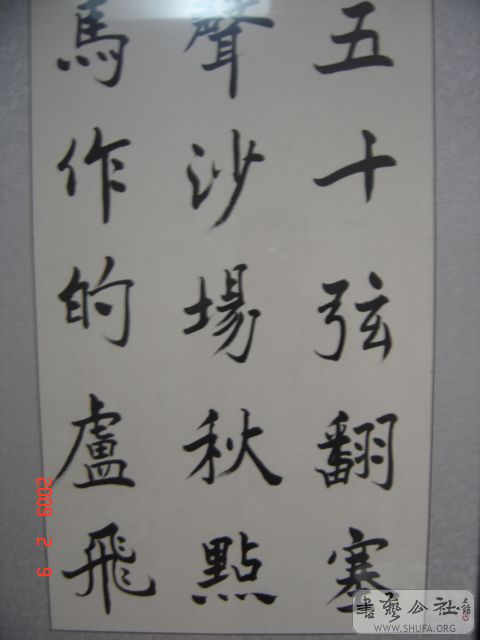 五十弦翻塞
聲沙場秋點
馬作的盧飛
2009 2 9
書藝公社
WWW.SHUFA.ORG